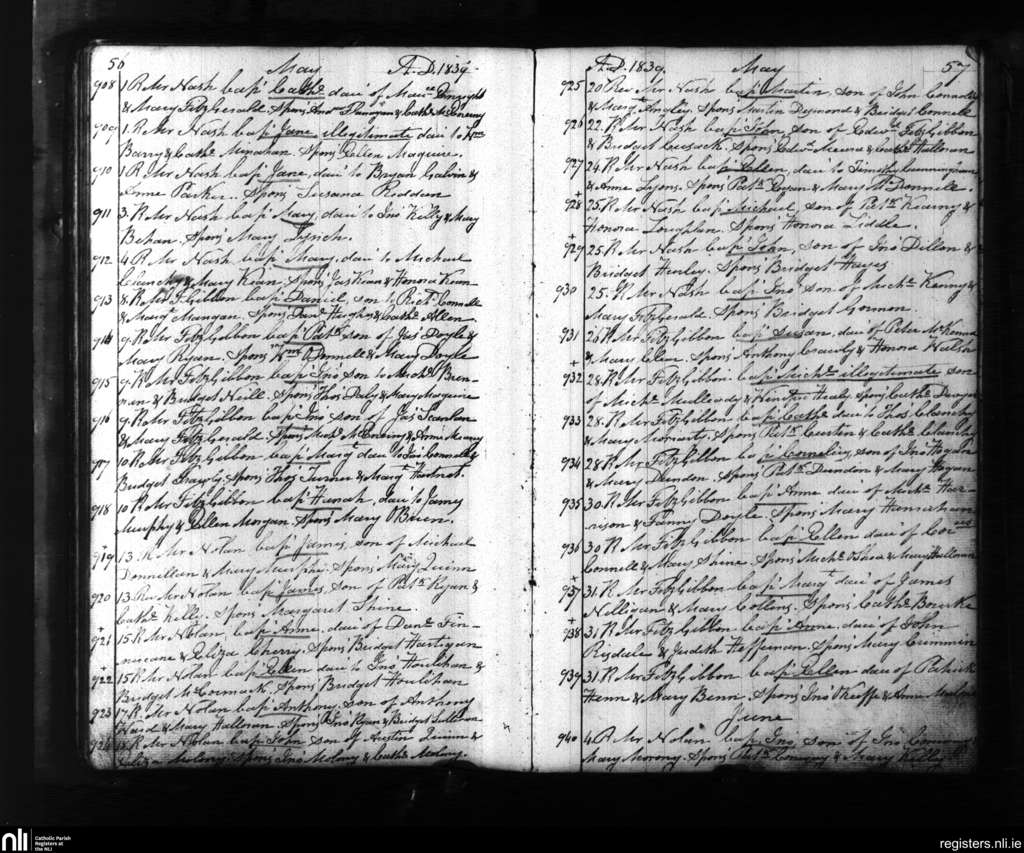 56 May A.D. 1839.
908 1 R Mr Nash bap: Cathe. dau: of
& Mary FitzGerald. Spons:
909 1 R Mr Nash bap: Jane illegitimate dau: to Wm
Barry & Cathe. Minahan. Spons: Ellen Maguire.
910 1 R Mr Nash bap: Jane, dau: to Bryan Galvin &
Anne Parker. Spons: Susana Rudden
911 3. R Mr Nash bap: Mary, dau: to Jno Kelly & Mary
Behan. Spons: Mary Lynch.
912 4 R Mr Nash bap: Mary, dau: to Michael
Clanchy & Mary Kean. Spons: Jas Kean & Honora Kean
913 8. R Mr FGibbon bap: Daniel, son to Richd. Connell
& Margt Mangan. Spons: Danl Hughs & Cathe. Allen
914 9. R Mr FitzGibbon bap: Patk son of Jas Doyle &
Mary Ryan. Spons: Wm O'Donnell & Mary Doyle
915 9. R Mr FitzGibbon bap: Jno son to Michl Bren-
nan & Bridget Neill. Spons: Thos Daly & Mary Maguire
916 9. R Mr FitzGibbon bap: Jno son of Jas Scanlan
& Mary FitzGerald. Spons: Michl & Anne
917 10 R Mr FitzGibbon bap: Margt dau: to Jno Connell &
Bridget Spons: Thos Turner & Margt Hartnet
918 10 R Mr FitzGibbon bap: Hanah, dau: to James
Murphy & Ellen Morgan. Spons: Mary O'Brien.
+
919 13. R Mr Nolan bap: James, son of Michael
Donnellan & Mary Murphy. Spons: Mary Quinn
920 13. R Mr Nolan bap: James son of Patk Ryan &
Cathe Kelly. Spons: Margaret Shine.
+
921 15. R Mr Nolan bap: Anne, dau: of Danl Fin-
nucane & Eliza Cherry. Spons: Budget Hartigan
+
922 15 R Mr Nolan bap: Ellen dau: to Jno Houlihan &
Bridget McCormack. Spons: Bridget Houlihan
+
923 17. R Mr Nolan bap: Anthony, son of Anthony
Ward & Mary Halloran. Spons: Jno Ryan & Bridgt Sullivan
924 18. R Mr Nolan bap: John son of Austin Quinn &
Eliza Molony. Spons: Jno Molony & Cathe Molony.
A.D. 1839. May 57
925 20 Rev Mr Nash bap: Martin, son of John Connell
& Margt Angley. Spons: Martin Desmond & Bridget Connell
926 22. R Mr Nash bap: Jean, son of Edwd FitzGibbon
& Bridget Cusack. Spons: Edwd & Cathe Halloran
927 24. R Mr Nash bap: Ellen, dau: to Timothy Cunningham
& Anne Lyons. Spons: Patk Ryan & Mary McDonnell.
+
928 25. R Mr Nash bap: Michael, son of Patk Kearny &
Honora Loughlan. Spons: Honora Liddle.
+
929 25 R Mr Nash bap: John, son of Jno Dillon &
Bridget Henley. Spons: Bridget Hayes
930 25. R Mr Nash bap: Jno son of Michl Kenny &
Mary FitzGerald. Spons: Bridget Gorman.
931 26 R Mr FitzGibbon bap: Susan, dau: of Peter McKenna
& Mary Spons: Anthony Crawly & Honora Walsh
+
932 28. R Mr FitzGibbon bap: Michl illegitimate son
of Michl Mulleady & Healy Spons: Cathe
933 28. R Mr FitzGibbon bap: Cathe dau: to Thos Clanchy
& Mary Moriarty. Spons: Patk Curtin & Cathe Clanchy
934 28 R Mr FitzGibbon bap: Cornelius, son of Jno Hogan
& Mary Dundon. Spons: Patk Dundon & Mary Hogan
935 30. R Mr FitzGibbon bap: Anne dau: of Michl Har-
rison & Fanny Doyle. Spons: Mary Hanrahan
936 30 R Mr FitzGibbon bap: Ellen dau: of Corns
Connell & Mary Shine. Spons: Michl Shea & Mary Halloran
+
937 31. R Mr FitzGibbon bap: Margt dau: of James
Nelligan & Mary Collins. Spons: Cathe Bourke
+
938 31 R Mr FitzGibbon bap: Anne dau: of John
Risdale & Judeth Heffernan. Spons: Mary Cummin
939 31 R Mr FitzGibbon bap: Ellen dau: of Patrick
Henn & Mary Benn. Spons: Jno Keeffe & Anne
June
940 4 R Mr Nolan bap: Jno son of Jno
Mary Morony. Spons: Patk & Mary Kelly
nli
Catholic Parish
Registers at
the NLI
registers.nli.ie